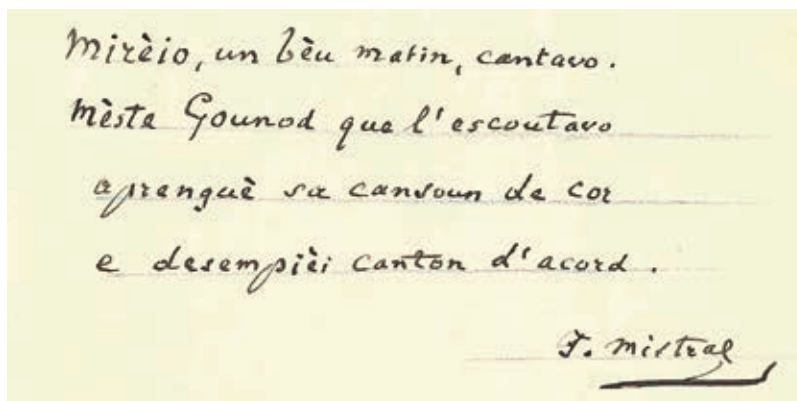 Mirèio, un bèu matin, cantavo.
Mèste Gounod que l'escoutavo
aprenguè sa cansoun de cor
e desempièi canton d'acord.
F. Mistral